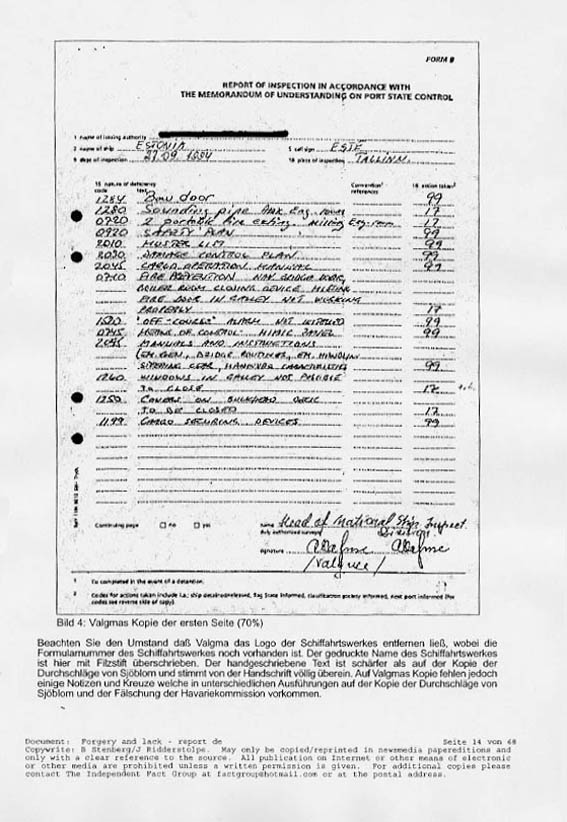 FORM B
REPORT OF INSPECTION IN ACCORDANCE WITH
THE MEMORANDUM OF UNDERSTANDING ON PORT STATE CONTROL
1 name of issuing authority
2 name of ship ESTONIA 5 call sign ESTE
9 date of inspection 27.09.1994 10 place of inspection TALLINN.
15 nature of deficiency Convention 16 action taken
code text references
1284 Bow door 99
1280 Sounding pipe Eng. room 17
0720 2 portable fire exting. missing Eng. room 17
0920 SAFETY PLAN 99
2010 MUSTER LIST 99
2030 DAMAGE CONTROL PLAN 99
2045 CARGO OPERATION MANUAL 99
0710 FIRE PREVENTION
BOILER ROOM CLOSING DEVICE MISSING
FIRE DOOR IN GALLEY NOT WORKING
PROPERLY 17
1520 "OFF-COURSE" ALARM NOT 99
0745 MEANS OF CONTROL. MIMIC PANEL 99
2055 MANUALS AND INSTRUCTIONS
(EM. GEN, BRIDGE ROUTINES, EM. HANDLING
STEERING GEAR, 99
1260 WINDOWS IN GALLEY NOT POSSIBLE
TO CLOSE 17
1250 COVERS ON BULKHEAD DECK
TO BE CLOSED 17
1199 CARGO SECURING DEVICES 99
Continuing page no yes
name Head of National Ship Inspect.
duly authorized surveyor Division
signature
/Valgma/
1 To completed in the event of a detention.
2 Codes for actions taken include i.a.: ship detained/released, flag State informed, classification society informed, next port informed (for
codes see reverse side of copy).
Bild 4: Valgmas Kopie der ersten Seite (70%)
Beachten Sie den Umstand daß Valgma das Logo der Schiffahrtswerkes entfernen ließ, wobei die
Formularnummer des Schiffahrtswerkes noch vorhanden ist. Der gedruckte Name des Schiffahrtswerkes
ist hier mit Filzstift überschrieben. Der handgeschriebene Text ist schärfer als auf der Kopie der
Durchschläge von Sjöblom und stimmt von der Handschrift völlig überein. Auf Valgmas Kopie fehlen jedoch
einige Notizen und Kreuze welche in unterschiedlichen Ausführungen auf der Kopie der Durchschläge von
Sjöblom und der Fälschung der Havariekommission vorkommen.
Document: Forgery and lack - report de Seite 14 von 68
Copywrite: B Stenberg/J Ridderstolpe. May only be copied/reprinted in newsmedia papereditions and
only with a clear reference to the source. All publication on Internet or other means of electronic
or other media are prohibited unless a written permission is given. For additional copies please
contact The Independent Fact Group at factgroup@hotmail.com or at the postal address.